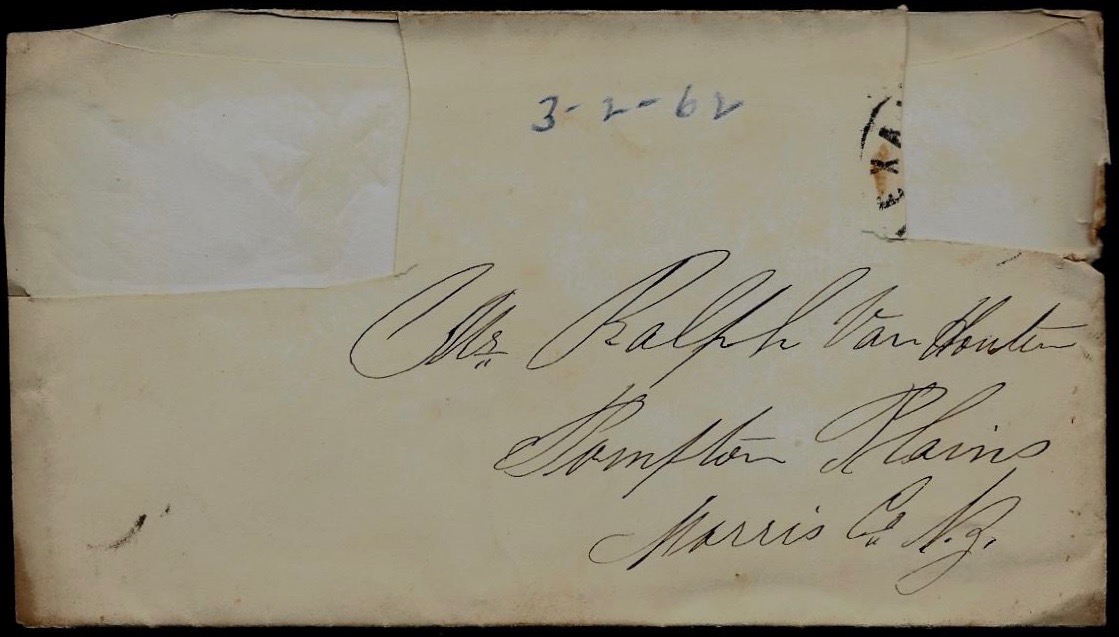 3-2-62
EXA
Mr. Ralph Van Houten
Pompton Plains
Morris Co. N.J.